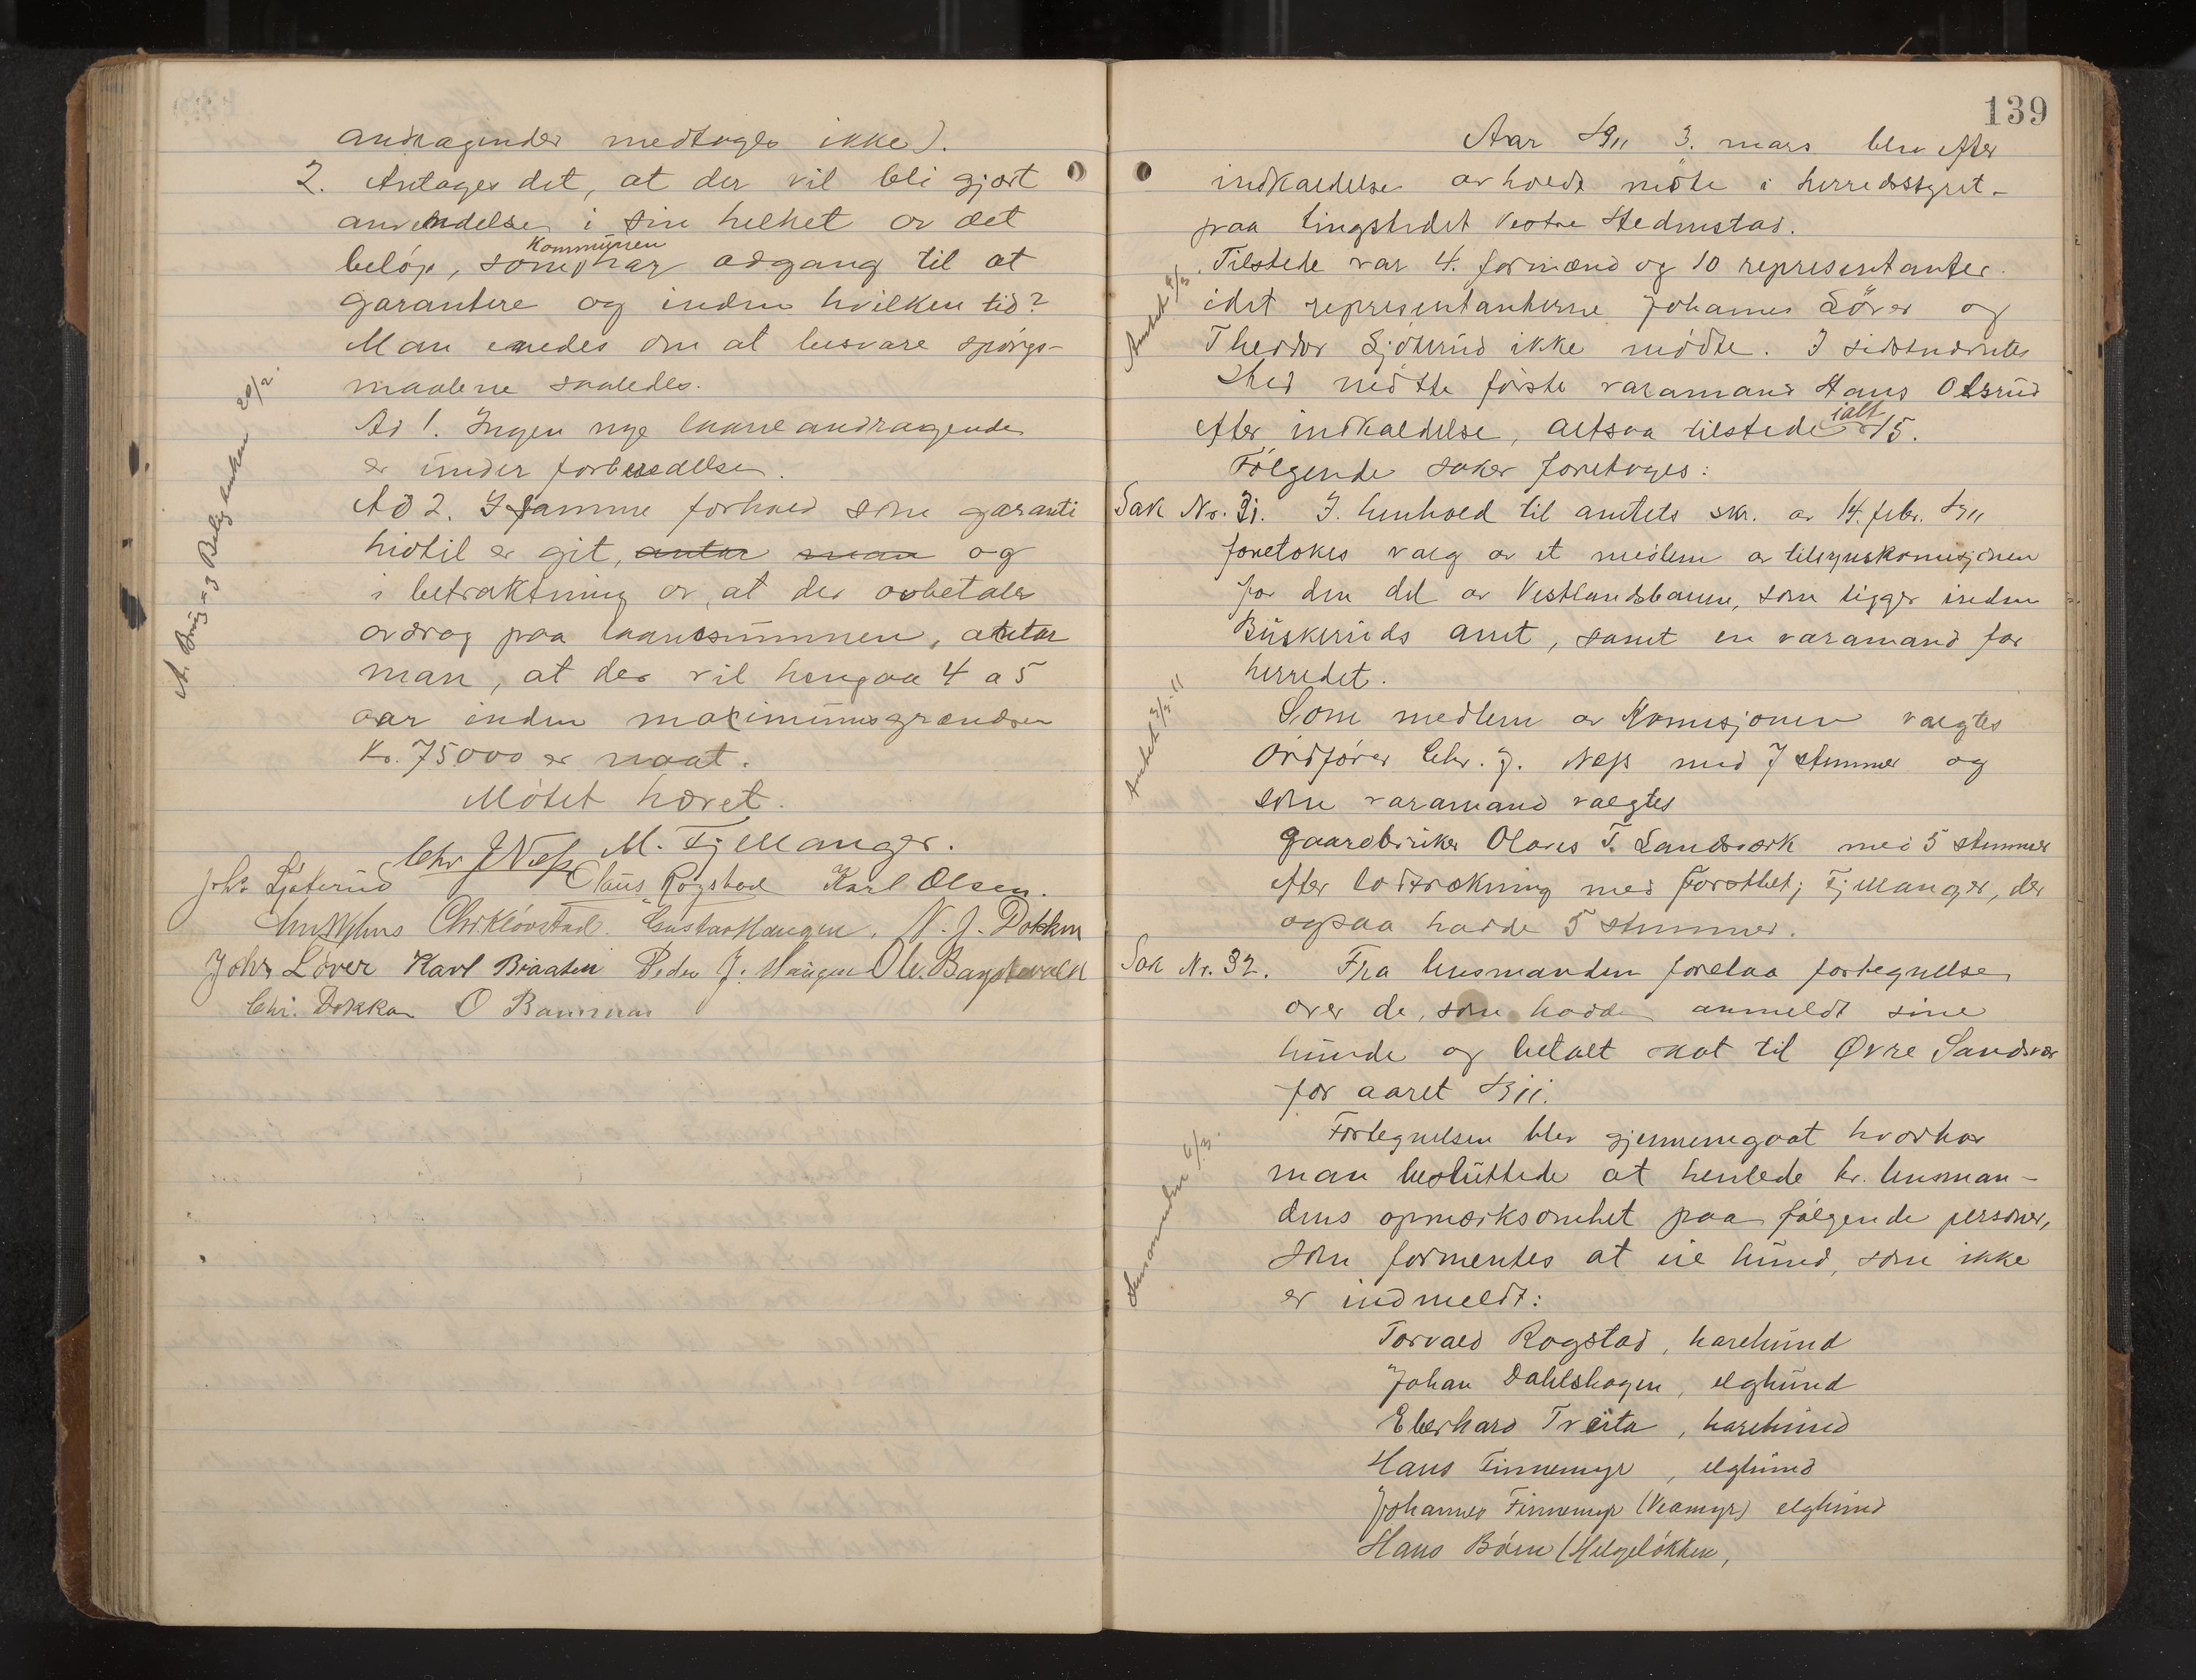 andragender medtages ikke).
2. Antages det, at der vil bli gjort
anvendelse i sin helhet av det
beløp, som kommunen har adgang til at
garantere og inden hvilken tid?
Man enedes om at besvare spörgs-
maalene saaledes.
Ad 1. Ingen nye laaneandragender
er under forberedelse.
Ad 2. I samme forhold som garanti
hidtil er git, antar man og
i betraktning av, at der avbetales
avdrag paa laanesummen, antar
man, at der vil hengaa 4 a 5
aar inden maximumsgrændsen
Kr. 75000 er naat.
Mötet hævet.
Chr J Næss M. Fjellanger.
Johs Ljøterud Claus Rogstad Karl Olsen.
Chr Kløvstad. Gustav Haugen. N. J. Dokken
Johs Løver Karl Braaten Peder J. Haugen Ole Bangstadvald
Chr. Dokka O Baumann
20/2.
139
Aar 1911 3. mars blev efter
indkaldelse avholdt möte i herredsstyret
paa tingstedet Vestre Hedenstad.
Tilstede var 4. formænd og 10 representanter.
idet representanterne Johannes Löver og
Theodor Ljöterud ikke mödte. I sidstnævntes
sted mödte förste varamand Hans Olsrud
efter indkaldelse, altsaa tilstede ialt 15.
Fölgende saker foretoges:
Sak Nr. 31. I henhold til amtets skr. av 14. febr. 1911
foretokes valg av et medlem av tilsynskomisjonen
for den del av Vestlandsbanen, som ligger inden
Buskeruds amt, samt en varamand for
herredet.
Som medlem av Komisjonen valgtes
Ordförer Chr. J. Næss med 7 stemmer og
som varamand valgtes
gaardbruker Olaves T. Landsverk med 5 stemmer
efter lodtrækning med Forstbetj. Fjellanger, der
ogsaa hadde 5 stemmer.
Amtet 3/5-11
Sak Nr. 32. Fra lensmanden forelaa fortegnelse
over de, som hadde anmeldt sine
hunde og betalt skat til Øvre Sandsvær
for aaret 1911.
Fortegnelsen blev gjennemgaat hvorhos
man besluttede at henlede hr. lensman-
dens opmerksomhet paa fölgende personer,
som formentes at eie hund, som ikke
er indmeldt:
Lensmanden 6/3.
Torvald Rogstad, harehund
Johan Dahlshagen, elghund
Eberhard Tveita, harehund
Hans Finnemyr, elghund
Johannes Finnemyr (Veamyr) elghund
Hans Börn (Helgelökken,